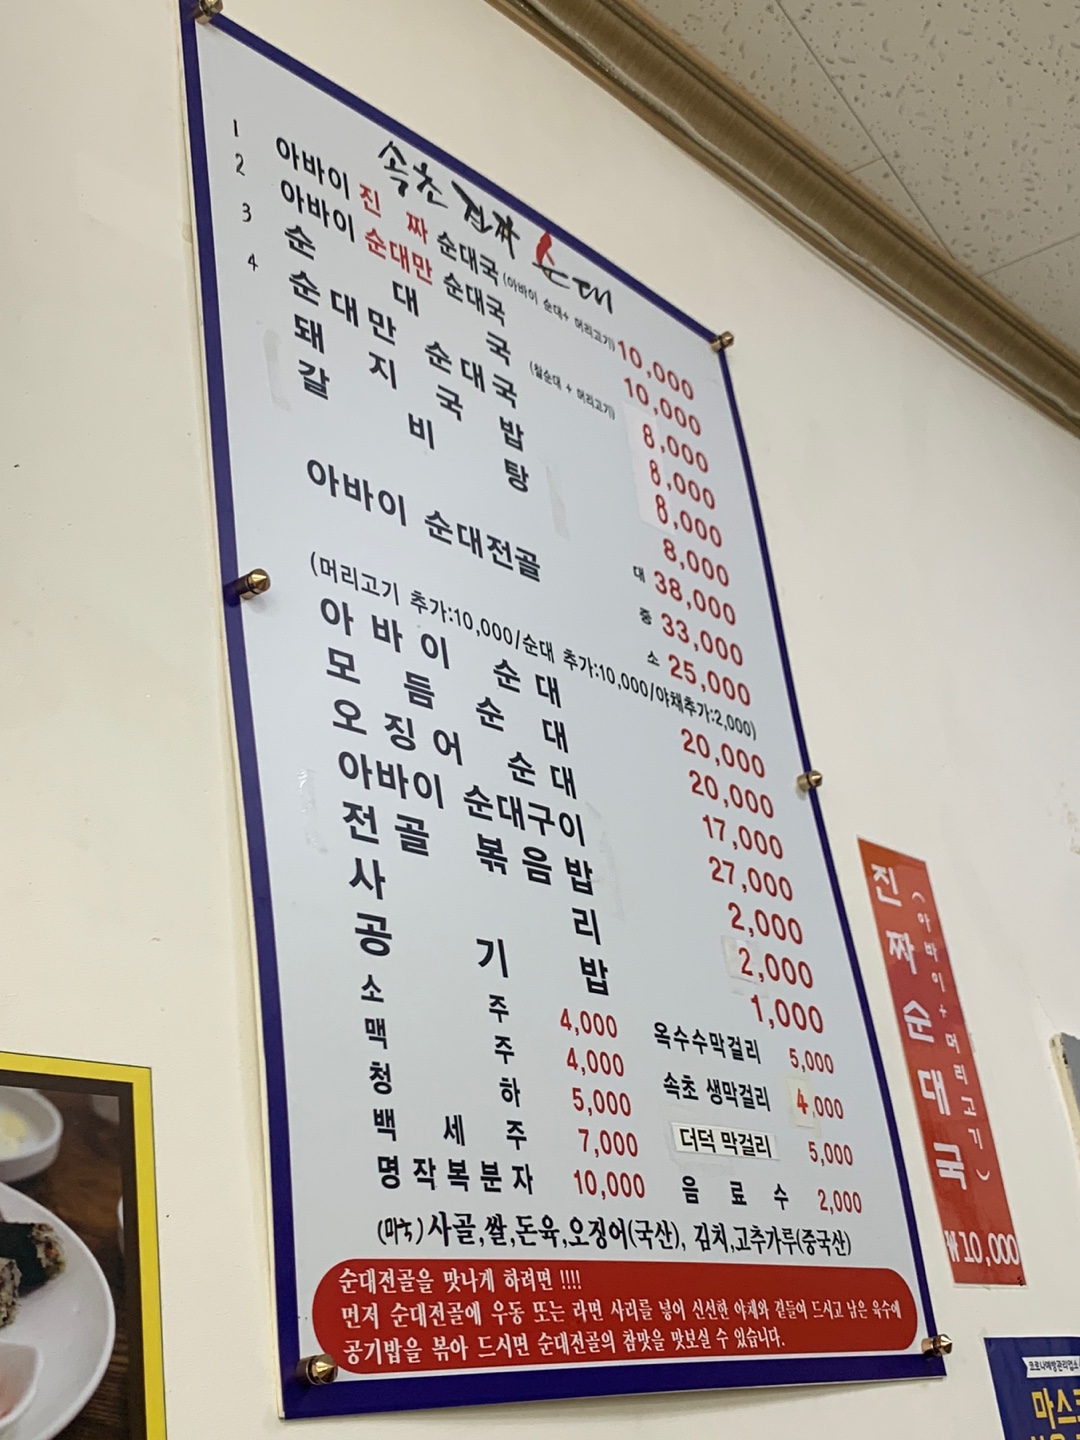 속초 진짜 순대
1 아바이 진짜 순대국 (아바이 순대+ 머리고기) 10,000
2 아바이 순대만 순대국 10,000
3 순대국 (찰순대 + 머리고기) 8,000
4 순대만 순대국 8,000
돼지국밥 8,000
갈비탕 8,000
아바이 순대전골 대 38,000
중 33,000
소 25,000
(머리고기 추가:10,000/순대 추가:10,000/야채추가:2,000)
아바이 순대 20,000
모듬순대 20,000
오징어 순대 17,000
아바이 순대구이 27,000
전골 볶음밥 2,000
사리 2,000
공기밥 1,000
소주 4,000 옥수수막걸리 5,000
맥주 4,000 속초 생막걸리 4,000
청하 5,000 더덕 막걸리 5,000
백세주 7,000 음료수 2,000
명작복분자 10,000
사골,쌀,돈육,오징어(국산), 김치,고추가루(중국산)
순대전골을 맛나게 하려면 !!!!
먼저 순대전골에 우동 또는 라면 사리를 넣어 신선한 야채와 곁들여 드시고 남은 육수에
공기밥을 볶아 드시면 순대전골의 참맛을 맛보실 수 있습니다.
진짜순대국
(아바이+머리고기)
₩10,000
코로나예방관리업소
마스크